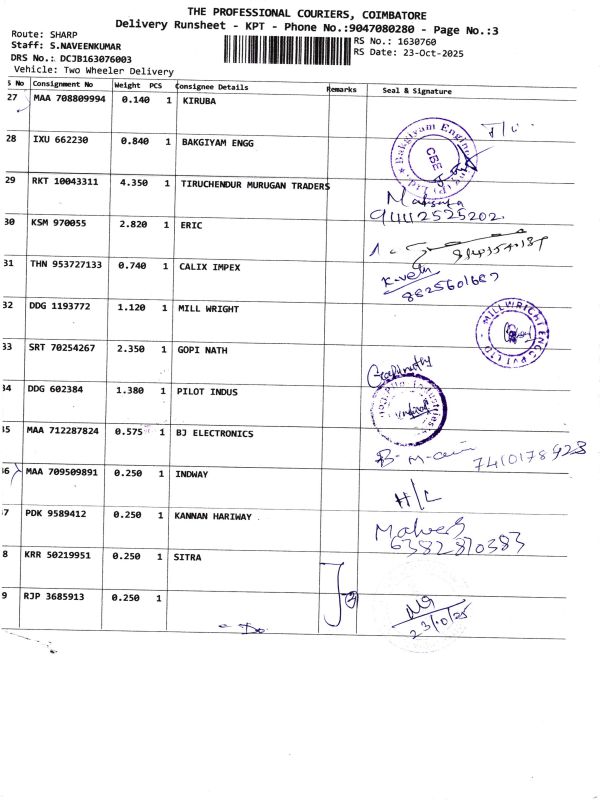 THE PROFESSIONAL COURIERS, COIMBATORE
Delivery Runsheet - KPT - Phone No.:9047080280 - Page No.:3
Route: SHARP
Staff: S.NAVEENKUMAR
RS No.: 1630760
DRS No.: DCJB163076003
RS Date: 23-Oct-2025
Vehicle: Two Wheeler Delivery
S No Consignment No Weight PCS Consignee Details Remarks Seal & Signature
27 MAA 708809994 0.140 1 KIRUBA
28 IXU 662230 0.840 1 BAKGIYAM ENGG
Bakgiyam CBE
29 RKT 10043311 4.350 1 TIRUCHENDUR MURUGAN TRADERS
9442525202
30 KSM 970055 2.820 1 ERIC
31 THN 953727133 0.740 1 CALIX IMPEX
K.velu
8825601667
32 DDG 1193772 1.120 1 MILL WRIGHT
MILLWRIGHT ENGG PVT LTD
33 SRT 70254267 2.350 1 GOPI NATH
Gopinath
34 DDG 602384 1.380 1 PILOT INDUS
35 MAA 712287824 0.575 1 BJ ELECTRONICS
7410178928
36 MAA 709509891 0.250 1 INDWAY
H/L
37 PDK 9589412 0.250 1 KANNAN HARIWAY
6382870383
8 KRR 50219951 0.250 1 SITRA
9 RJP 3685913 0.250 1
23/10/25